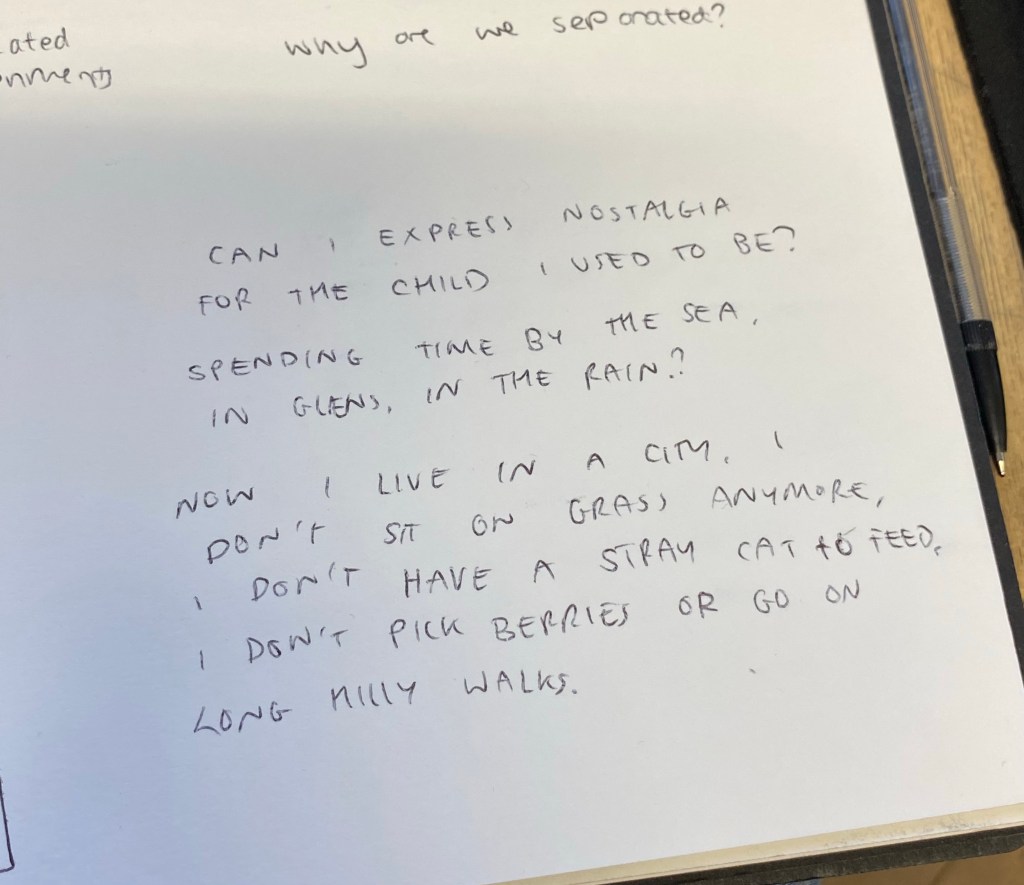 ated
why are we separated?
CAN I EXPRESS NOSTALGIA
FOR THE CHILD I USED TO BE?
SPENDING TIME BY THE SEA,
IN GLENS, IN THE RAIN?
NOW I LIVE IN A CITY, I
DON'T SIT ON GRASS ANYMORE,
I DON'T HAVE A STRAY CAT to FEED,
I DON'T PICK BERRIES OR GO ON
LONG HILLY WALKS.